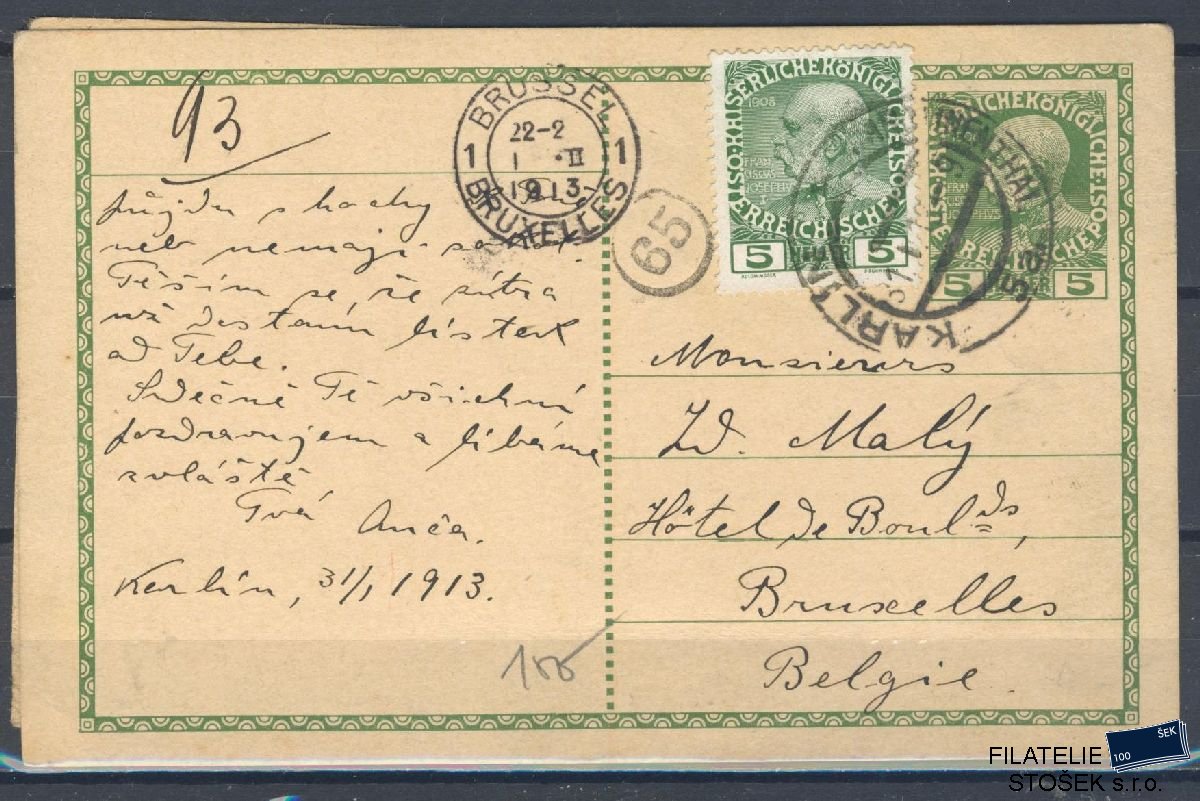 93
půjdu s hochy
neb nemají
Těším se, že zítra
už dostanu lístek
od Tebe.
Srdečně Tě všichni
pozdravujem a líbáme
zvláště
Tvá Anča.
Karlín, 31/1 1913.
100
BRUSSEL
22-2
1 · II
1913
1 1
BRUXELLES
65
KAISERLICHE KÖNIGLICHE ÖSTERREICHISCHE POST
1908
FRANCISCVS
JOSEPH I
5 5
KARLÍN
KAROLINENTHAL
5 5
Monsieurs
Zd. Malý
Hôtel de Boul.ds,
Bruxelles
Belgie.
FILATELIE
STOŠEK s.r.o.
100 ŠEK